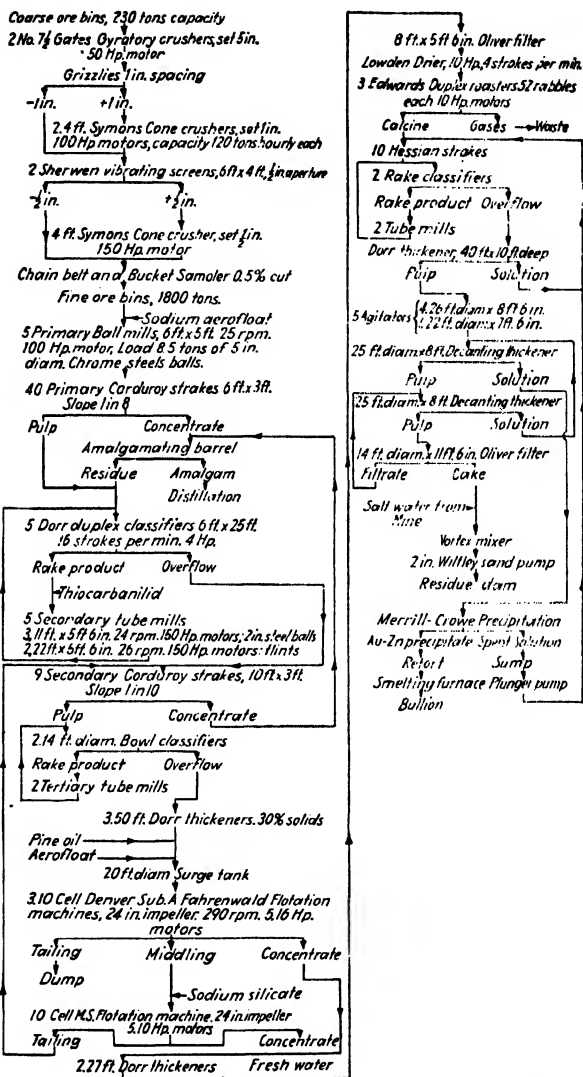 Coarse ore bins, 230 tons capacity
2 No. 7½ Gates Gyratory crushers, set 5in.
50 Hp. motor
Grizzlies 1 in. spacing
-1in. +1in.
2.4 ft. Symons Cone crushers, set 1in.
100 Hp motors, capacity 120 tons hourly each
2 Sherwen vibrating screens, 6ft x 4 ft. ½ in aperture
-½ in. +½ in.
4 ft. Symons Cone crusher, set ½ in.
150 Hp. motor
Chain belt and Bucket Sampler 0.5% cut
Fine ore bins, 1800 tons.
Sodium aerofloat
5 Primary Ball mills, 6 ft x 5 ft. 25 rpm.
100 Hp. motor, Load 8.5 tons of 5 in.
diam. Chrome steels balls.
40 Primary Corduroy strakes 6 ft x 3ft.
Slope 1 in 8
Pulp Concentrate
Amalgamating barrel
Residue Amalgam
Distillation
5 Dorr duplex classifiers 6 ft x 25 ft.
16 strokes per min. 4 Hp.
Rake product Overflow
Thiocarbanilid
5 Secondary tube mills
3, 11 ft. x 5 ft 6 in. 24 rpm. 150 Hp. motors; 2in. steel balls
2, 22 ft x 5 ft. 6 in. 26 rpm. 150 Hp. motors: flints
9 Secondary Corduroy strakes, 10 ft x 3 ft.
Slope 1 in 10
Pulp Concentrate
2.14 ft. diam. Bowl classifiers
Rake product Overflow
2 Tertiary tube mills
3.50 ft. Dorr thickeners. 30% solids
Pine oil
Aerofloat
20 ft. diam Surge tank
3.10 Cell Denver Sub. A Fahrenwald Flotation
machines, 24 in. impeller. 290 rpm. 5.16 Hp.
motors
Tailing Middling Concentrate
Dump
Sodium silicate
10 Cell M.S. Flotation machine, 24 in. impeller
5.10 Hp. motors
Tailing Concentrate
2.27 ft. Dorr thickeners Fresh water
8 ft. x 5 ft 6 in. Oliver filter
Lowden Drier, 10 Hp, 4 strokes per min.
3 Edwards Duplex roasters 52 rabbles
each 10 Hp. motors
Calcine Gases Waste
10 Hessian strakes
2 Rake classifiers
Rake product Overflow
2 Tube mills
Dorr thickener, 40 ft x 10 ft. deep
Pulp Solution
5 Agitators { 4.26 ft. diam x 8 ft 6 in.
1.22 ft. diam x 7 ft. 6 in.
25 ft. diam x 8 ft. Decanting thickener
Pulp Solution
25 ft. diam. x 8 ft. Decanting thickener
Pulp Solution
14 ft. diam. x 11 ft. 6 in. Oliver filter
Filtrate Cake
Salt water from
Mine
Vortex mixer
2 in. Wilfley sand pump
Residue dam
Merrill-Crowe Precipitation
Au-Zn precipitate Spent Solution
Retort Sump
Smelting furnace Plunger pump
Bullion